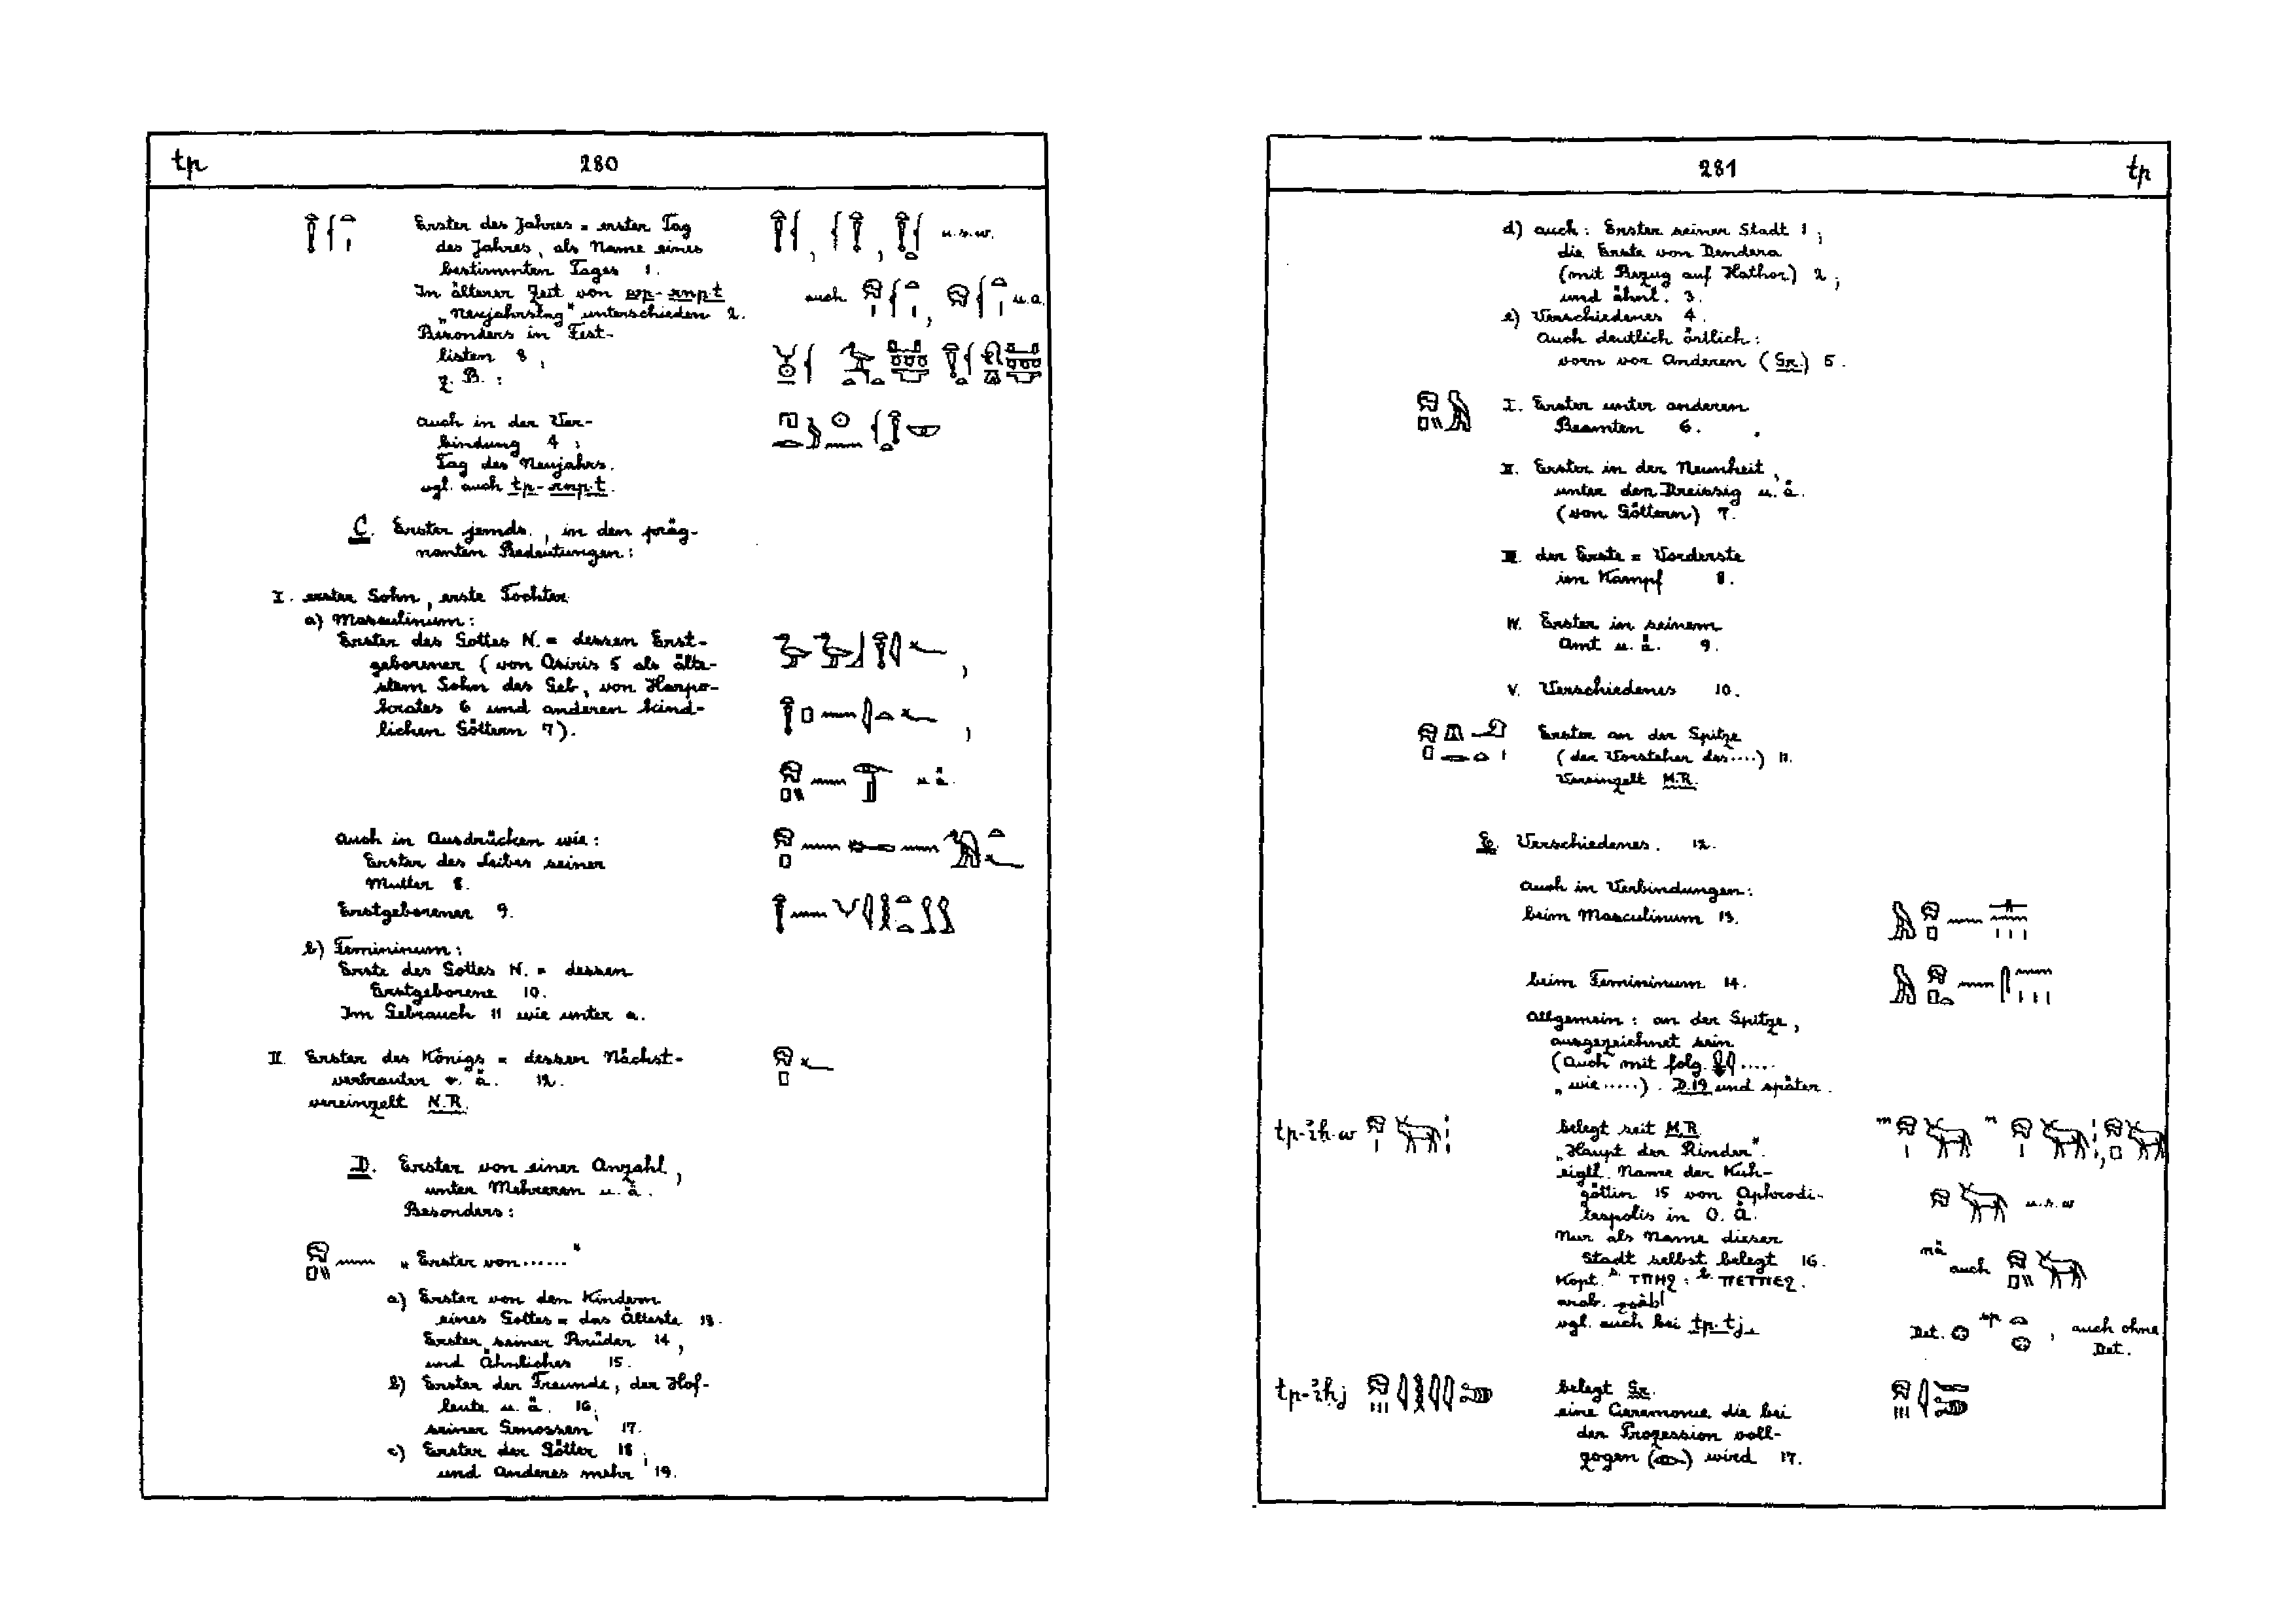 tp 280
Erster des Jahres = erster Tag
des Jahres, als Name eines
bestimmten Tages 1.
u.s.w.
In älterer Zeit von wp-rnp.t
auch
u.a.
„Neujahrstag" unterschieden 2.
Besonders in Fest-
listen 3,
z.B.:
Auch in der Ver-
bindung 4:
Tag des Neujahrs.
vgl. auch tp-rnp.t.
C. Erster jemds., in den präg-
nanten Bedeutungen:
I. erster Sohn, erste Tochter
a) Masculinum:
Erster des Gottes N. = dessen Erst-
geborener (von Osiris 5 als älte-
stem Sohn des Geb, von Harpo-
krates 6 und anderen kind-
lichen Göttern 7).
u.ä.
Auch in Ausdrücken wie:
Erster des Leibes seiner
Mutter 8.
Erstgeborener 9.
b) Femininum:
Erste des Gottes N. = dessen
Erstgeborene 10.
Im Gebrauch 11 wie unter a.
II. Erster des Königs = dessen Nächst-
vertrauter u.ä. 12.
vereinzelt N.R.
D. Erster von einer Anzahl,
unter Mehreren u.ä.
Besonders:
„Erster von......"
a) Erster von den Kindern
eines Gottes = das Älteste 13.
Erster seiner Brüder 14,
und Ähnliches 15.
b) Erster der Freunde, der Hof-
leute u.ä. 16,
seiner Genossen 17.
c) Erster der Götter 18,
und Anderes mehr 19.
281 tp
d) auch: Erster seiner Stadt 1;
die Erste von Dendera
(mit Bezug auf Hathor) 2;
und ähnl. 3.
e) Verschiedenes 4.
Auch deutlich örtlich:
vorn vor Anderen (Gr.) 5.
I. Erster unter anderen
Beamten 6.
II. Erster in der Neunheit,
unter den Dreissig u.ä.
(von Göttern) 7.
III. der Erste = Vorderste
im Kampf 8.
IV. Erster in seinem
Amt u.ä. 9.
V. Verschiedenes 10.
Erster an der Spitze
(der Vorsteher des....) 11.
Vereinzelt M.R.
E. Verschiedenes. 12.
Auch in Verbindungen:
beim Masculinum 13.
beim Femininum 14.
Allgemein: an der Spitze,
ausgezeichnet sein
(Auch mit folg. .....
„wie.....). D.19 und später.
tp-ỉḥ.w
belegt seit M.R.
„Haupt der Rinder".
eigtl. Name der Kuh-
göttin 15 von Aphrodi-
tespolis in O.Ä.
u.s.w
Nur als Name dieser
Stadt selbst belegt 16.
nä auch
Kopt. S. ⲧⲡⲏϩ: B. ⲡⲉⲧⲡⲉϩ.
arab.
vgl. auch bei tp.tj.
Det. sp , auch ohne
Det.
tp-ỉhj
belegt Gr.
eine Ceremonie die bei
der Prozession voll-
zogen ( ) wird 17.